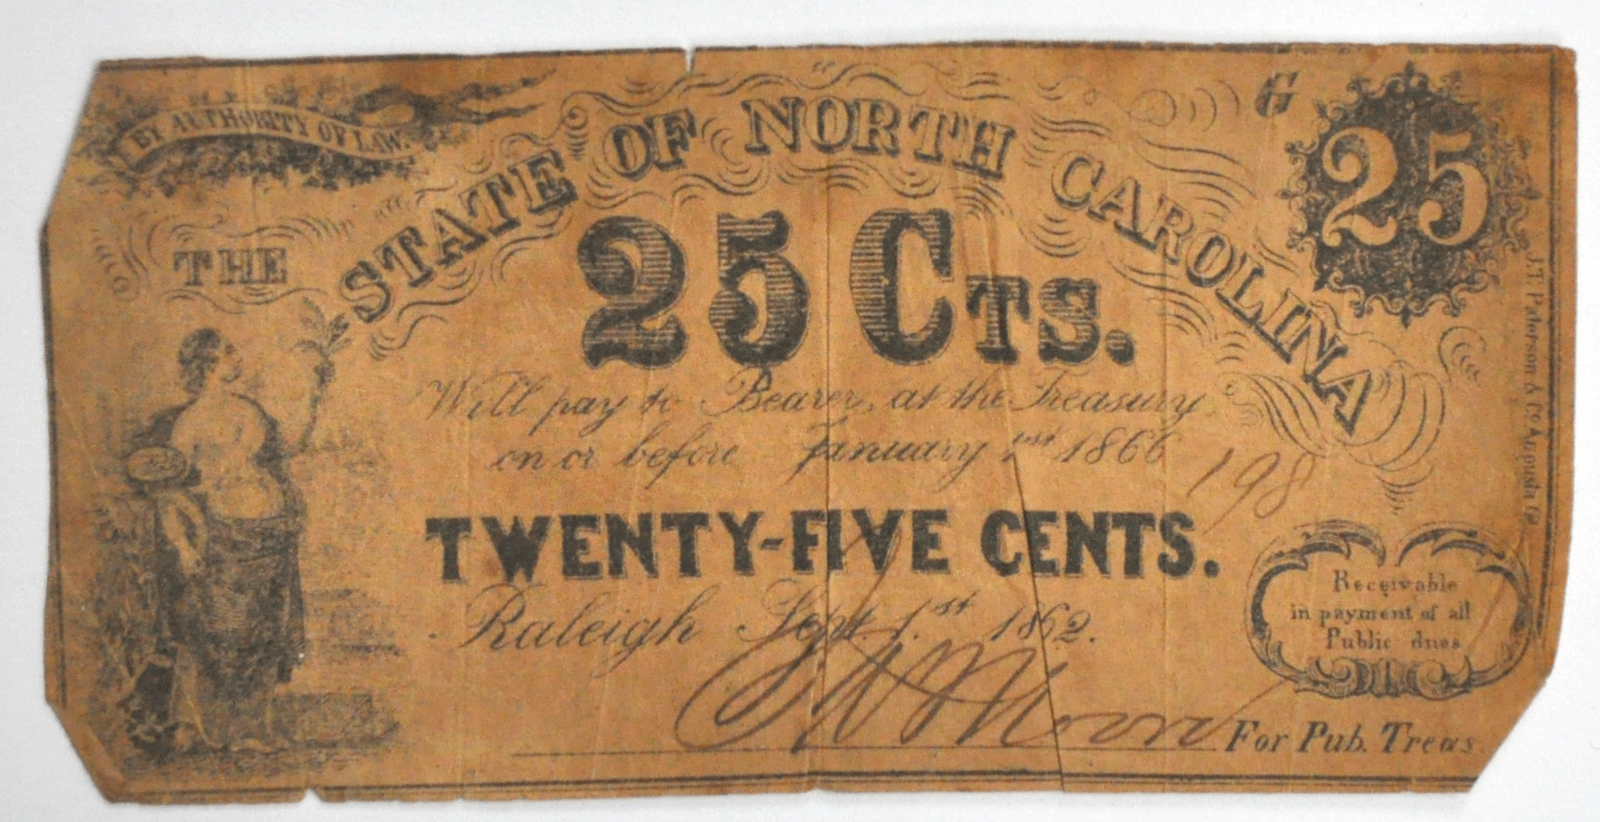 BY AUTHORITY OF LAW.
THE STATE OF NORTH CAROLINA
G
25
25 CTS.
Will pay to Bearer, at the Treasury
on or before January 1st 1866
198
TWENTY-FIVE CENTS.
Raleigh Sept. 1st 1862.
Receivable
in payment of all
Public dues
For Pub. Treas.
J.T. Paterson & Co Augusta Ga